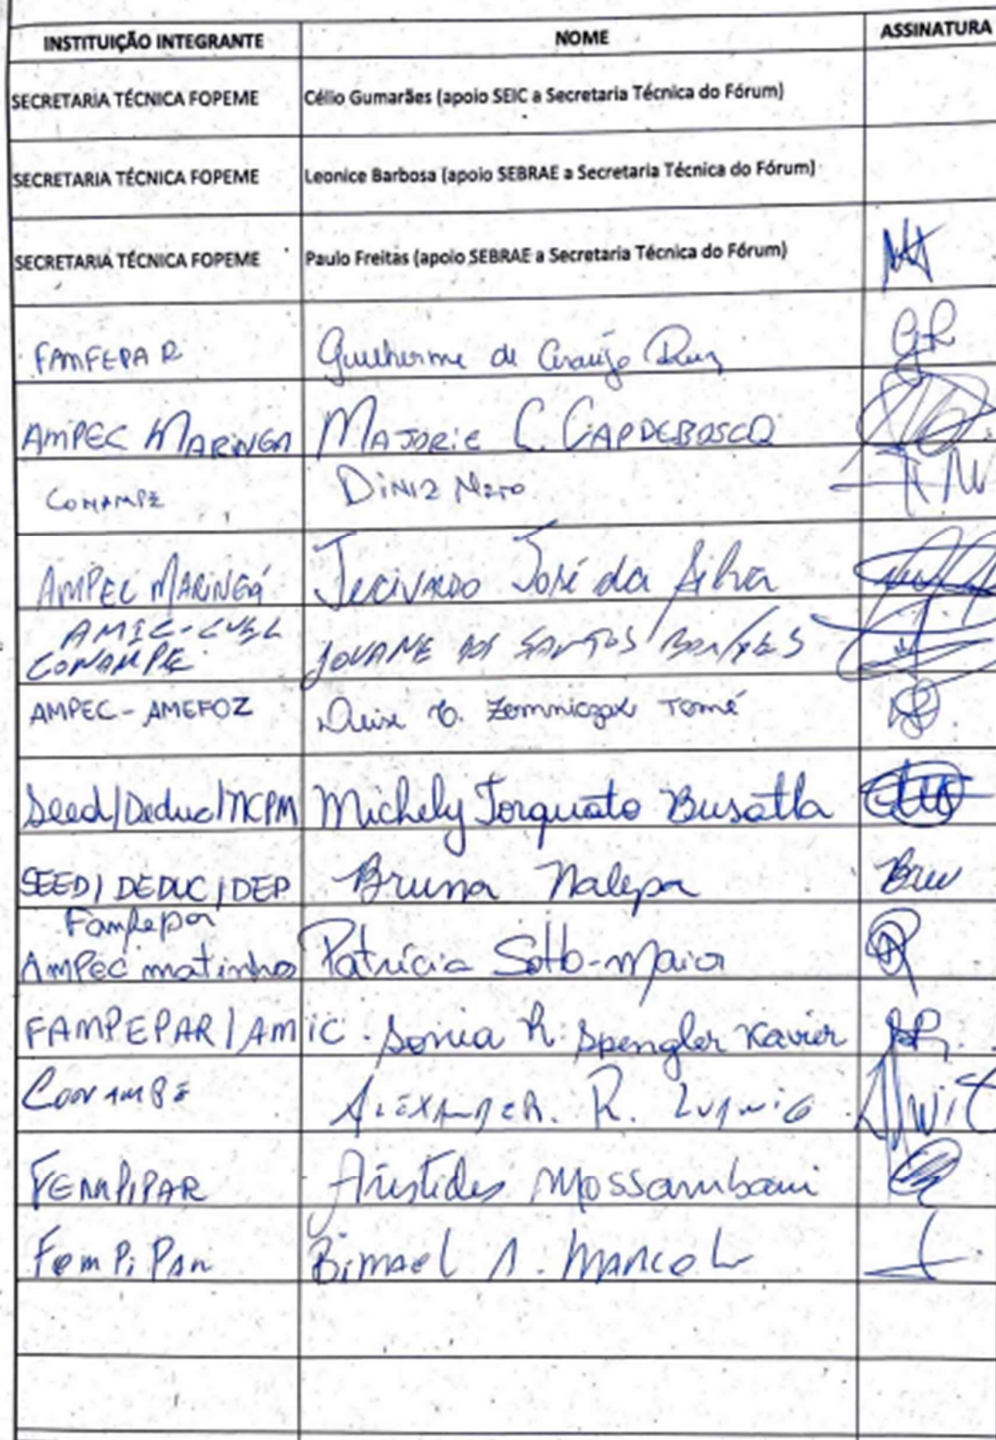 INSTITUIÇÃO INTEGRANTE NOME ASSINATURA
SECRETARIA TÉCNICA FOPEME Célio Gumarães (apoio SEIC a Secretaria Técnica do Fórum)
SECRETARIA TÉCNICA FOPEME Leonice Barbosa (apoio SEBRAE a Secretaria Técnica do Fórum)
SECRETARIA TÉCNICA FOPEME Paulo Freitas (apoio SEBRAE a Secretaria Técnica do Fórum)
FAMFEPAR Guilherme de Araújo
AMPEC MARINGA MAJORIE C. CAPDEBOSCQ
CONAMPE DINIZ Neto
AMPEC MARINGÁ JECIVALDO José da Silva
AMIC-
CONAMPE JOVANE DOS SANTOS
AMPEC-AMEFOZ Tomé
Seed/Deduc/ Michely Torquato
SEED/DEDUC/DEP Bruna Nalepa
Fampepar
AMPEC matinhos Patrícia Sotto-Maior
FAMPEPAR/AMIC. Sonia R. Spengler Xavier
ALEXANDER. R. LUDWIG
FEMPIPAR Aristides Mossambani
FemPiPar Bimael A.